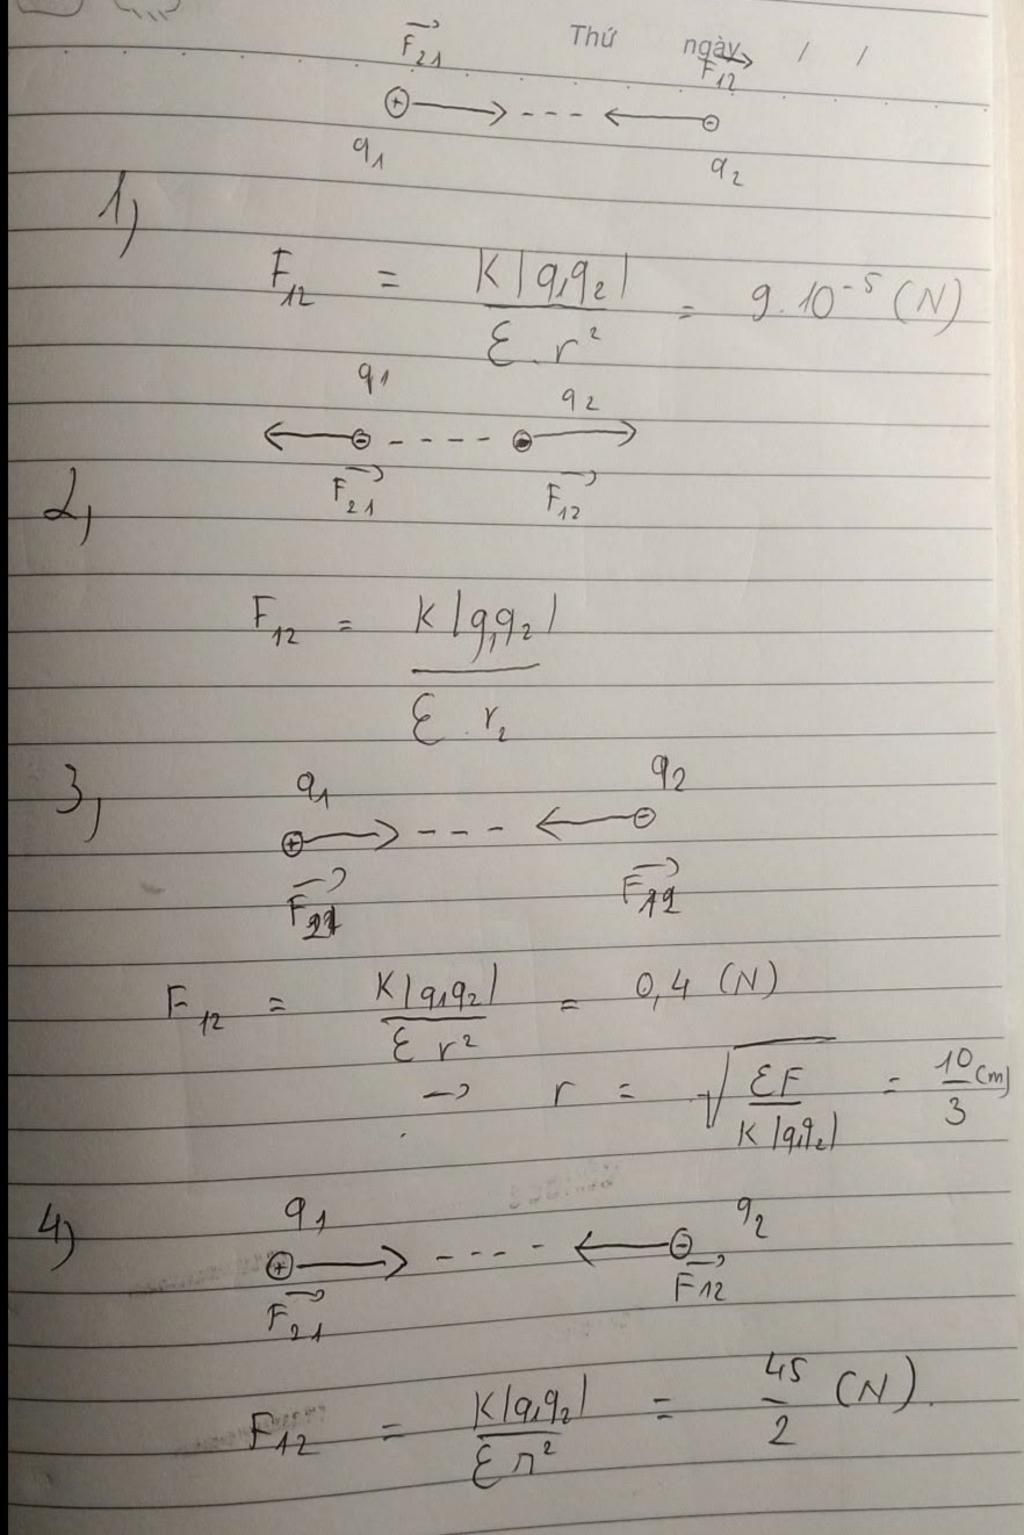 Thứ ngày / /
F₂₁ F₁₂
q₁ q₂
1,
F₁₂ = K|q₁q₂| / ε.r² = 9.10⁻⁵ (N)
q₁ q₂
F₂₁ F₁₂
2,
F₁₂ = K|q₁q₂| / ε.r₂
3,
q₁ q₂
F₂₁ F₁₂
F₁₂ = K|q₁q₂| / ε r² = 0,4 (N)
→ r = √(εF / K|q₁q₂|) = 10/3 (m)
4)
q₁ q₂
F₂₁ F₁₂
F₁₂ = K|q₁q₂| / ε r² = 45/2 (N).